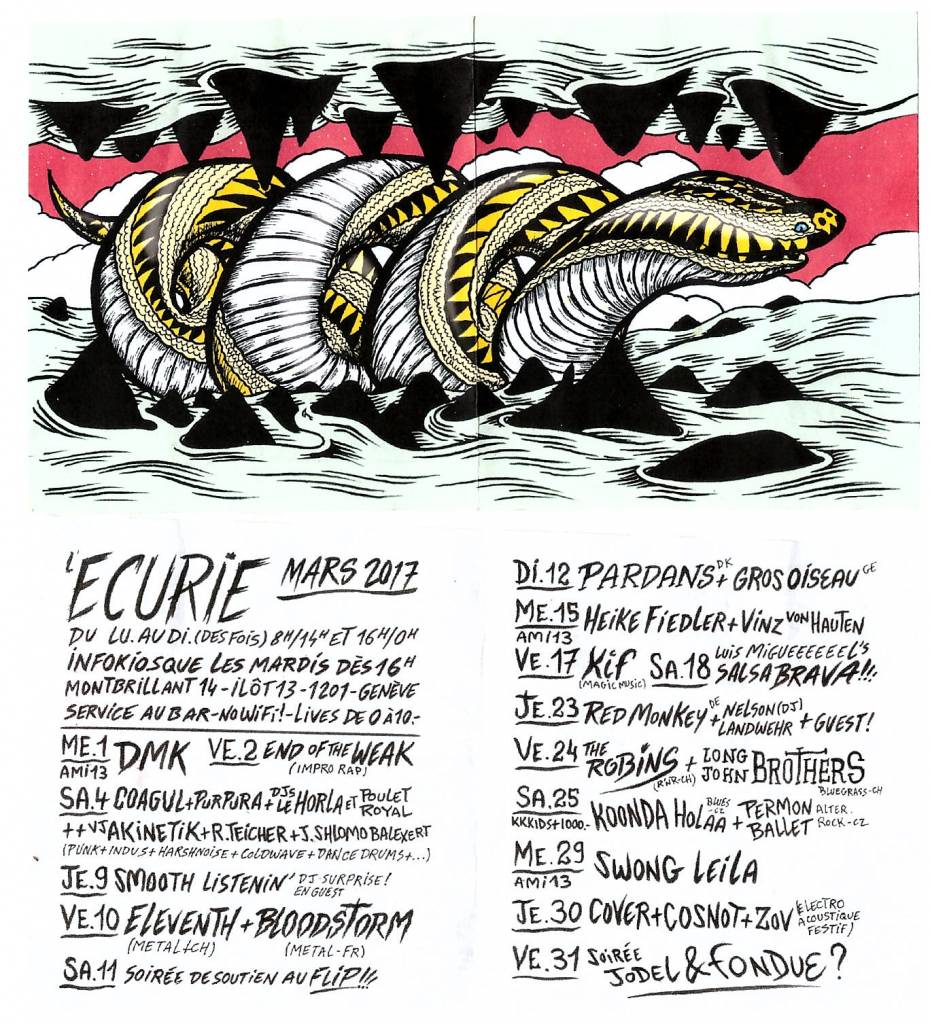 L'ECURIE MARS 2017
DU LU. AU DI. (DES FOIS) 8H/14H ET 16H/0H
INFOKIOSQUE LES MARDIS DÈS 16H
MONTBRILLANT 14 - ILÔT 13 - 1201 - GENÈVE
SERVICE AU BAR - NO WIFI! - LIVES DE 0 À 10.-
ME.1 DMK VE.2 END OF THE WEAK
AMI13 (IMPRO RAP)
SA.4 COAGUL + PURPURA + DJs LE HORLA ET POULET ROYAL
++ VJ AKINETIK + R.TEICHER + J.SHLOMO BALEXERT
(PUNK + INDUS + HARSHNOISE + COLDWAVE + DANCE DRUMS + ...)
JE.9 SMOOTH LISTENIN' DJ SURPRISE! EN GUEST
VE.10 ELEVENTH + BLOODSTORM
(METAL-CH) (METAL-FR)
SA.11 SOIRÉE DE SOUTIEN AU FLIP!!!
DI.12 PARDANS DK + GROS OISEAU GE
ME.15 HEIKE FIEDLER + VINZ VON HAUTEN
AMI13
VE.17 XIF SA.18 LUIS MIGUEEEEEL'S SALSA BRAVA!!!
(MAGIC MUSIC)
JE.23 RED MONKEY DE + NELSON (DJ) LANDWEHR + GUEST!
VE.24 THE ROBINS + LONG JOHN BROTHERS
(RWR-CH) BLUEGRASS-CH
SA.25 KOONDA HOLAA BLUES-CZ + PERMON BALLET ALTER. ROCK-CZ
KKKIDS + 1000.-
ME.29 SWONG LEILA
AMI13
JE.30 COVER + COSNOT + ZOV (ELECTRO ACOUSTIQUE FESTIF)
VE.31 SOIRÉE JODEL & FONDUE?